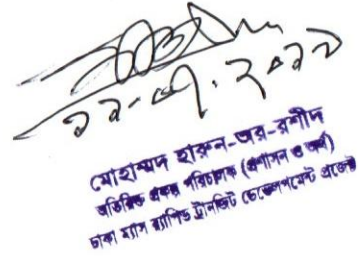 মোহাম্মদ হারুন-অর-রশীদ
অতিরিক্ত প্রকল্প পরিচালক (প্রশাসন ও অর্থ)
ঢাকা ম্যাস র‍্যাপিড ট্রানজিট ডেভেলপমেন্ট প্রজেক্ট